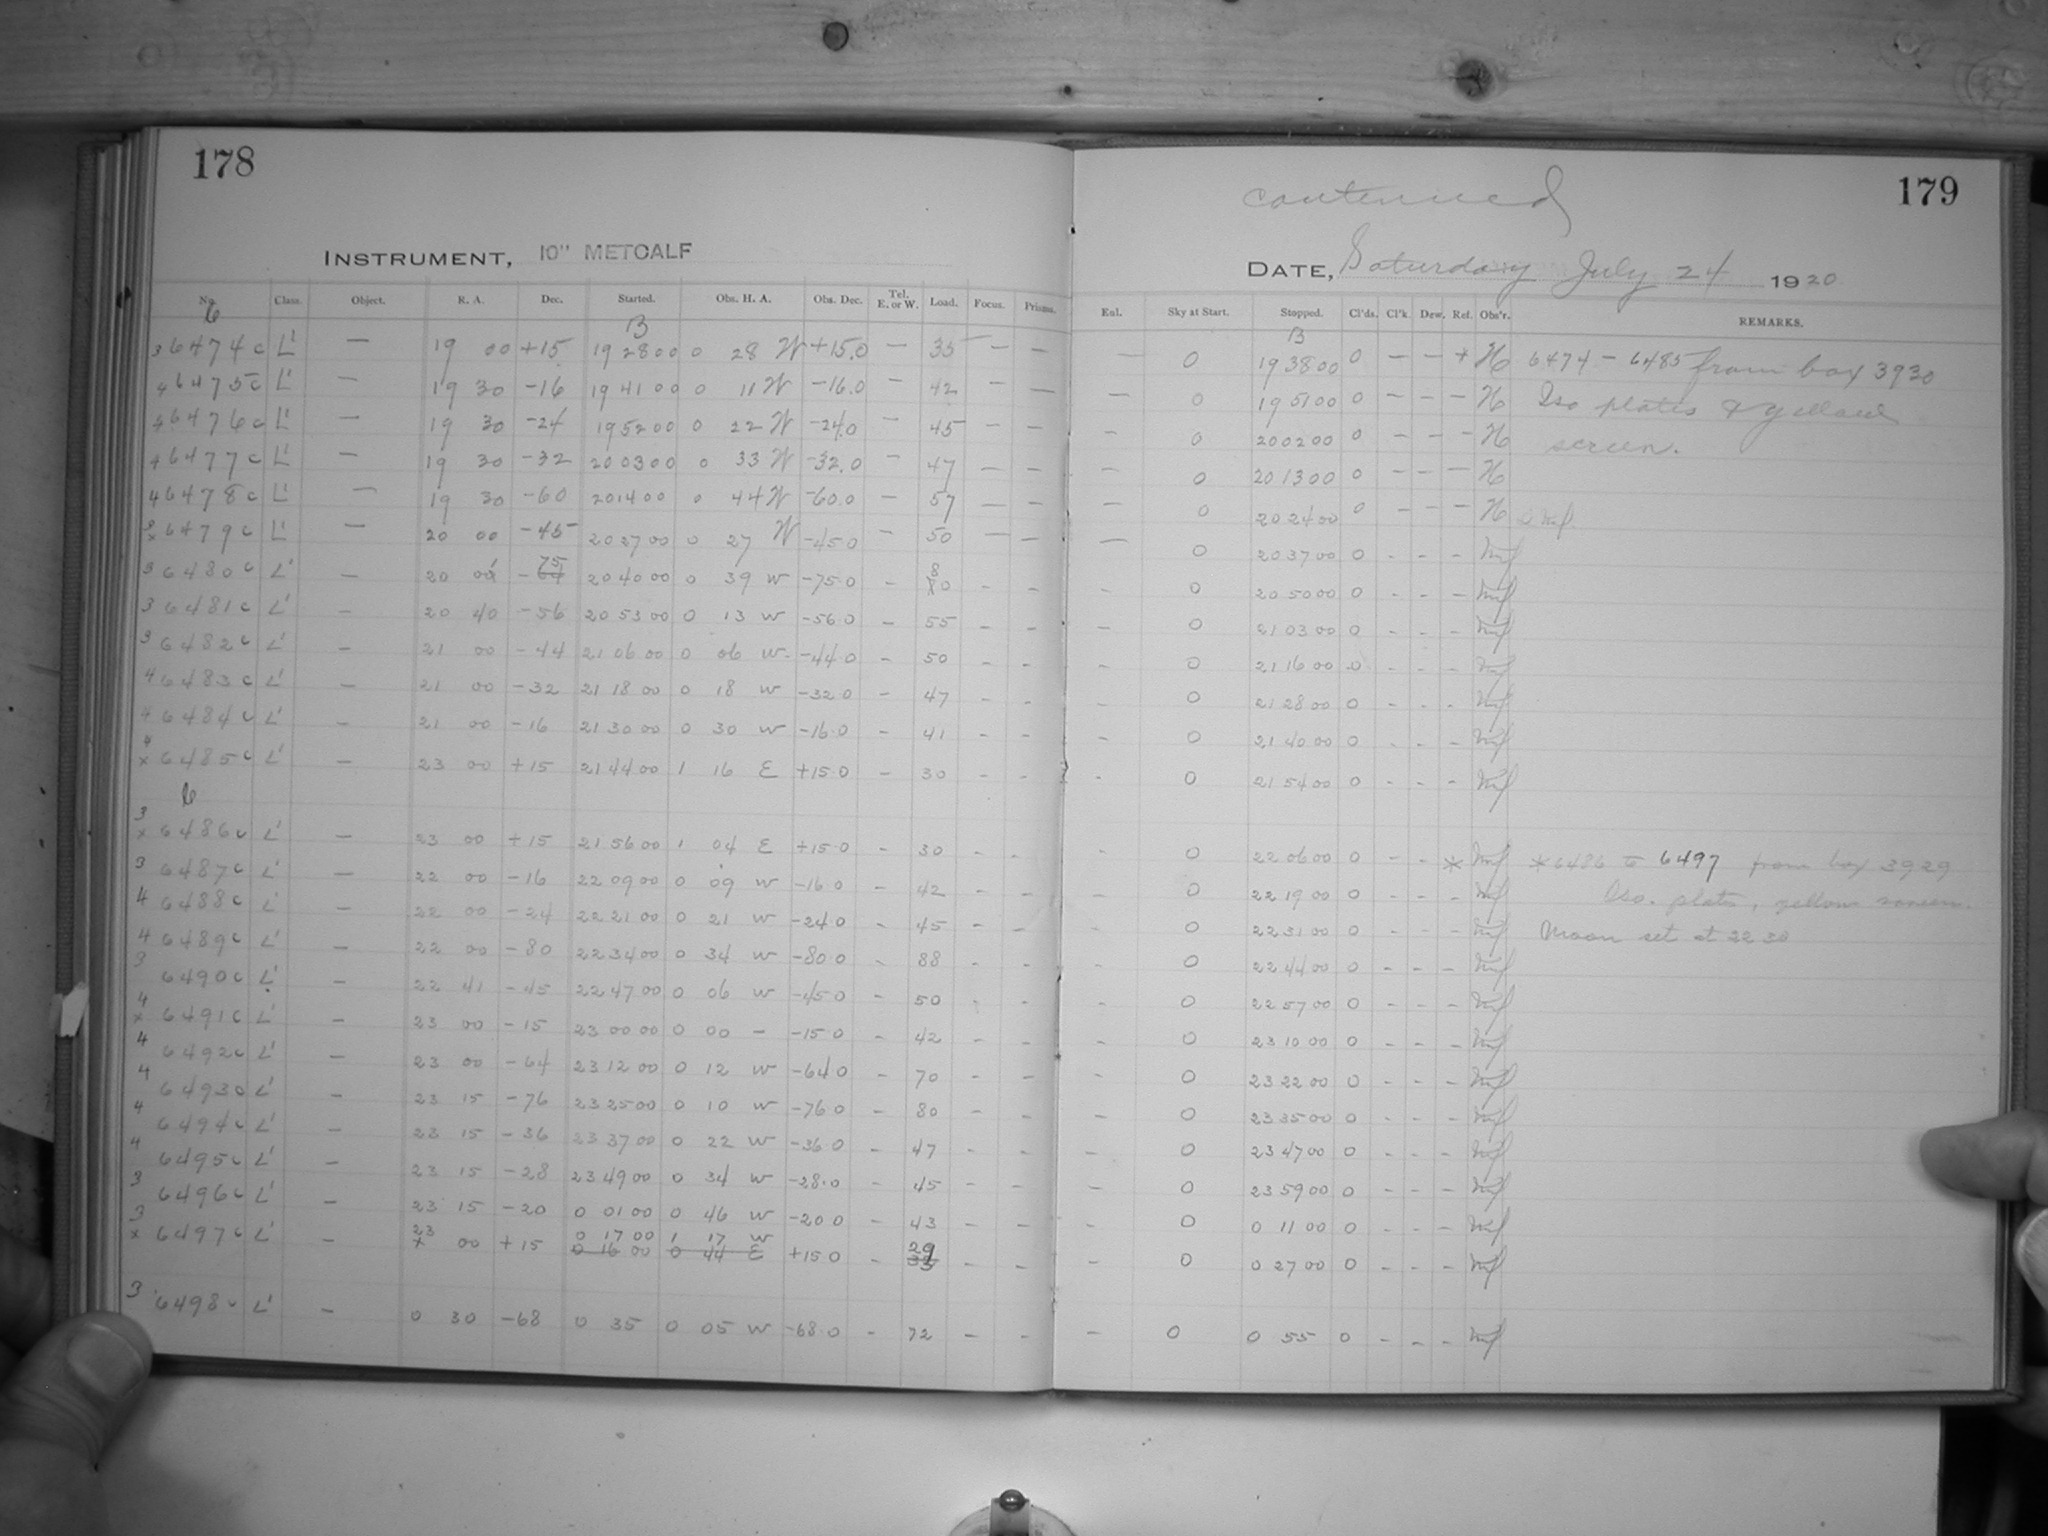 178
INSTRUMENT, 10" METCALF
No. Class. Object. R. A. Dec. Started. Obs. H. A. Obs. Dec. Tel. E. or W. Load. Focus. Prisms.
B
3 6474 c L' — 19 00 +15 19 28 00 0 28 W +15.0 — 35 — —
4 6475 c L' — 19 30 -16 19 41 00 0 11 W -16.0 — 42 — —
4 6476 c L' — 19 30 -24 19 52 00 0 22 W -24.0 — 45 — —
4 6477 c L' — 19 30 -32 20 03 00 0 33 W -32.0 — 47 — —
4 6478 c L' — 19 30 -60 20 14 00 0 44 W -60.0 — 57 — —
3 x 6479 c L' — 20 00 -45 20 27 00 0 27 W -45.0 — 50 — —
3 6480 c L' — 20 00 -75 20 40 00 0 39 W -75.0 - 80 - -
3 6481 c L' — 20 40 -56 20 53 00 0 13 W -56.0 - 55 - -
3 6482 c L' — 21 00 -44 21 06 00 0 06 W -44.0 - 50 - -
4 6483 c L' — 21 00 -32 21 18 00 0 18 W -32.0 - 47 - -
4 6484 c L' — 21 00 -16 21 30 00 0 30 W -16.0 - 41 - -
4 x 6485 c L' — 23 00 +15 21 44 00 1 16 E +15.0 - 30 - -
3 x 6486 c L' — 23 00 +15 21 56 00 1 04 E +15.0 - 30 - -
3 6487 c L' — 22 00 -16 22 09 00 0 09 W -16.0 - 42 - -
4 6488 c L' — 22 00 -24 22 21 00 0 21 W -24.0 - 45 - -
4 6489 c L' — 22 00 -80 22 34 00 0 34 W -80.0 - 88 - -
3 6490 c L' — 22 41 -45 22 47 00 0 06 W -45.0 - 50 - -
4 x 6491 c L' — 23 00 -15 23 00 00 0 00 - -15.0 - 42 - -
4 6492 c L' — 23 00 -64 23 12 00 0 12 W -64.0 - 70 - -
4 6493 c L' — 23 15 -76 23 25 00 0 10 W -76.0 - 80 - -
4 6494 c L' — 23 15 -36 23 37 00 0 22 W -36.0 - 47 - -
4 6495 c L' — 23 15 -28 23 49 00 0 34 W -28.0 - 45 - -
3 6496 c L' — 23 15 -20 0 01 00 0 46 W -20.0 - 43 - -
0 17 00 1 17 W 29
3 x 6497 c L' — 23 00 +15 0 16 00 0 44 E +15.0 - 33 - -
3 6498 c L' — 0 30 -68 0 35 0 05 W -68.0 - 72 - -
179
continued
DATE, Saturday July 24 1920
Eul. Sky at Start. Stopped. Cl'ds. Cl'k. Dew. Ref. Obs'r. REMARKS.
B
— 0 19 38 00 0 — — * H 6474 - 6485 from box 3930
— 0 19 51 00 0 — — — H Iso plates & yellow
— 0 20 02 00 0 — — — H screen.
— 0 20 13 00 0 — — — H
— 0 20 24 00 0 — — — H
— 0 20 37 00 0 - - -
0 20 50 00 0 - - -
- 0 21 03 00 0 - - -
- 0 21 16 00 0 - - -
- 0 21 28 00 0 - - -
- 0 21 40 00 0 - - -
- 0 21 54 00 0 - - -
- 0 22 06 00 0 - - * * 6486 to 6497 from box 3929
- 0 22 19 00 0 - - - Iso. plates, yellow screen.
- 0 22 31 00 0 - - - Moon set at 22 30
- 0 22 44 00 0 - - -
- 0 22 57 00 0 - - -
- 0 23 10 00 0 - - -
- 0 23 22 00 0 - - -
- 0 23 35 00 0 - - -
- 0 23 47 00 0 - - -
- 0 23 59 00 0 - - -
- 0 0 11 00 0 - - -
- 0 0 27 00 0 - - -
- 0 0 55 0 - - -